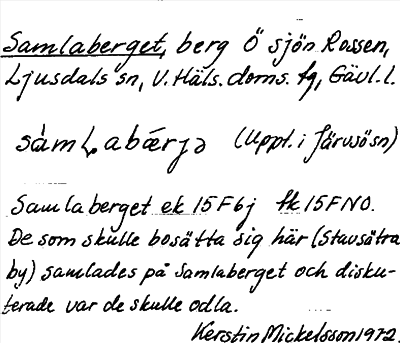 Samlaberget, berg Ö sjön Rossen,
Ljusdals sn, V. Häls. doms. tg, Gävl. l.
sàmLabǽrjə (Uppt. i Järvsö sn)
Samlaberget ek 15F6j fk 15F NO.
De som skulle bosätta sig här (Stavsätra
by) samlades på Samlaberget och disku-
terade var de skulle odla.
Kerstin Mickelsson 1972.